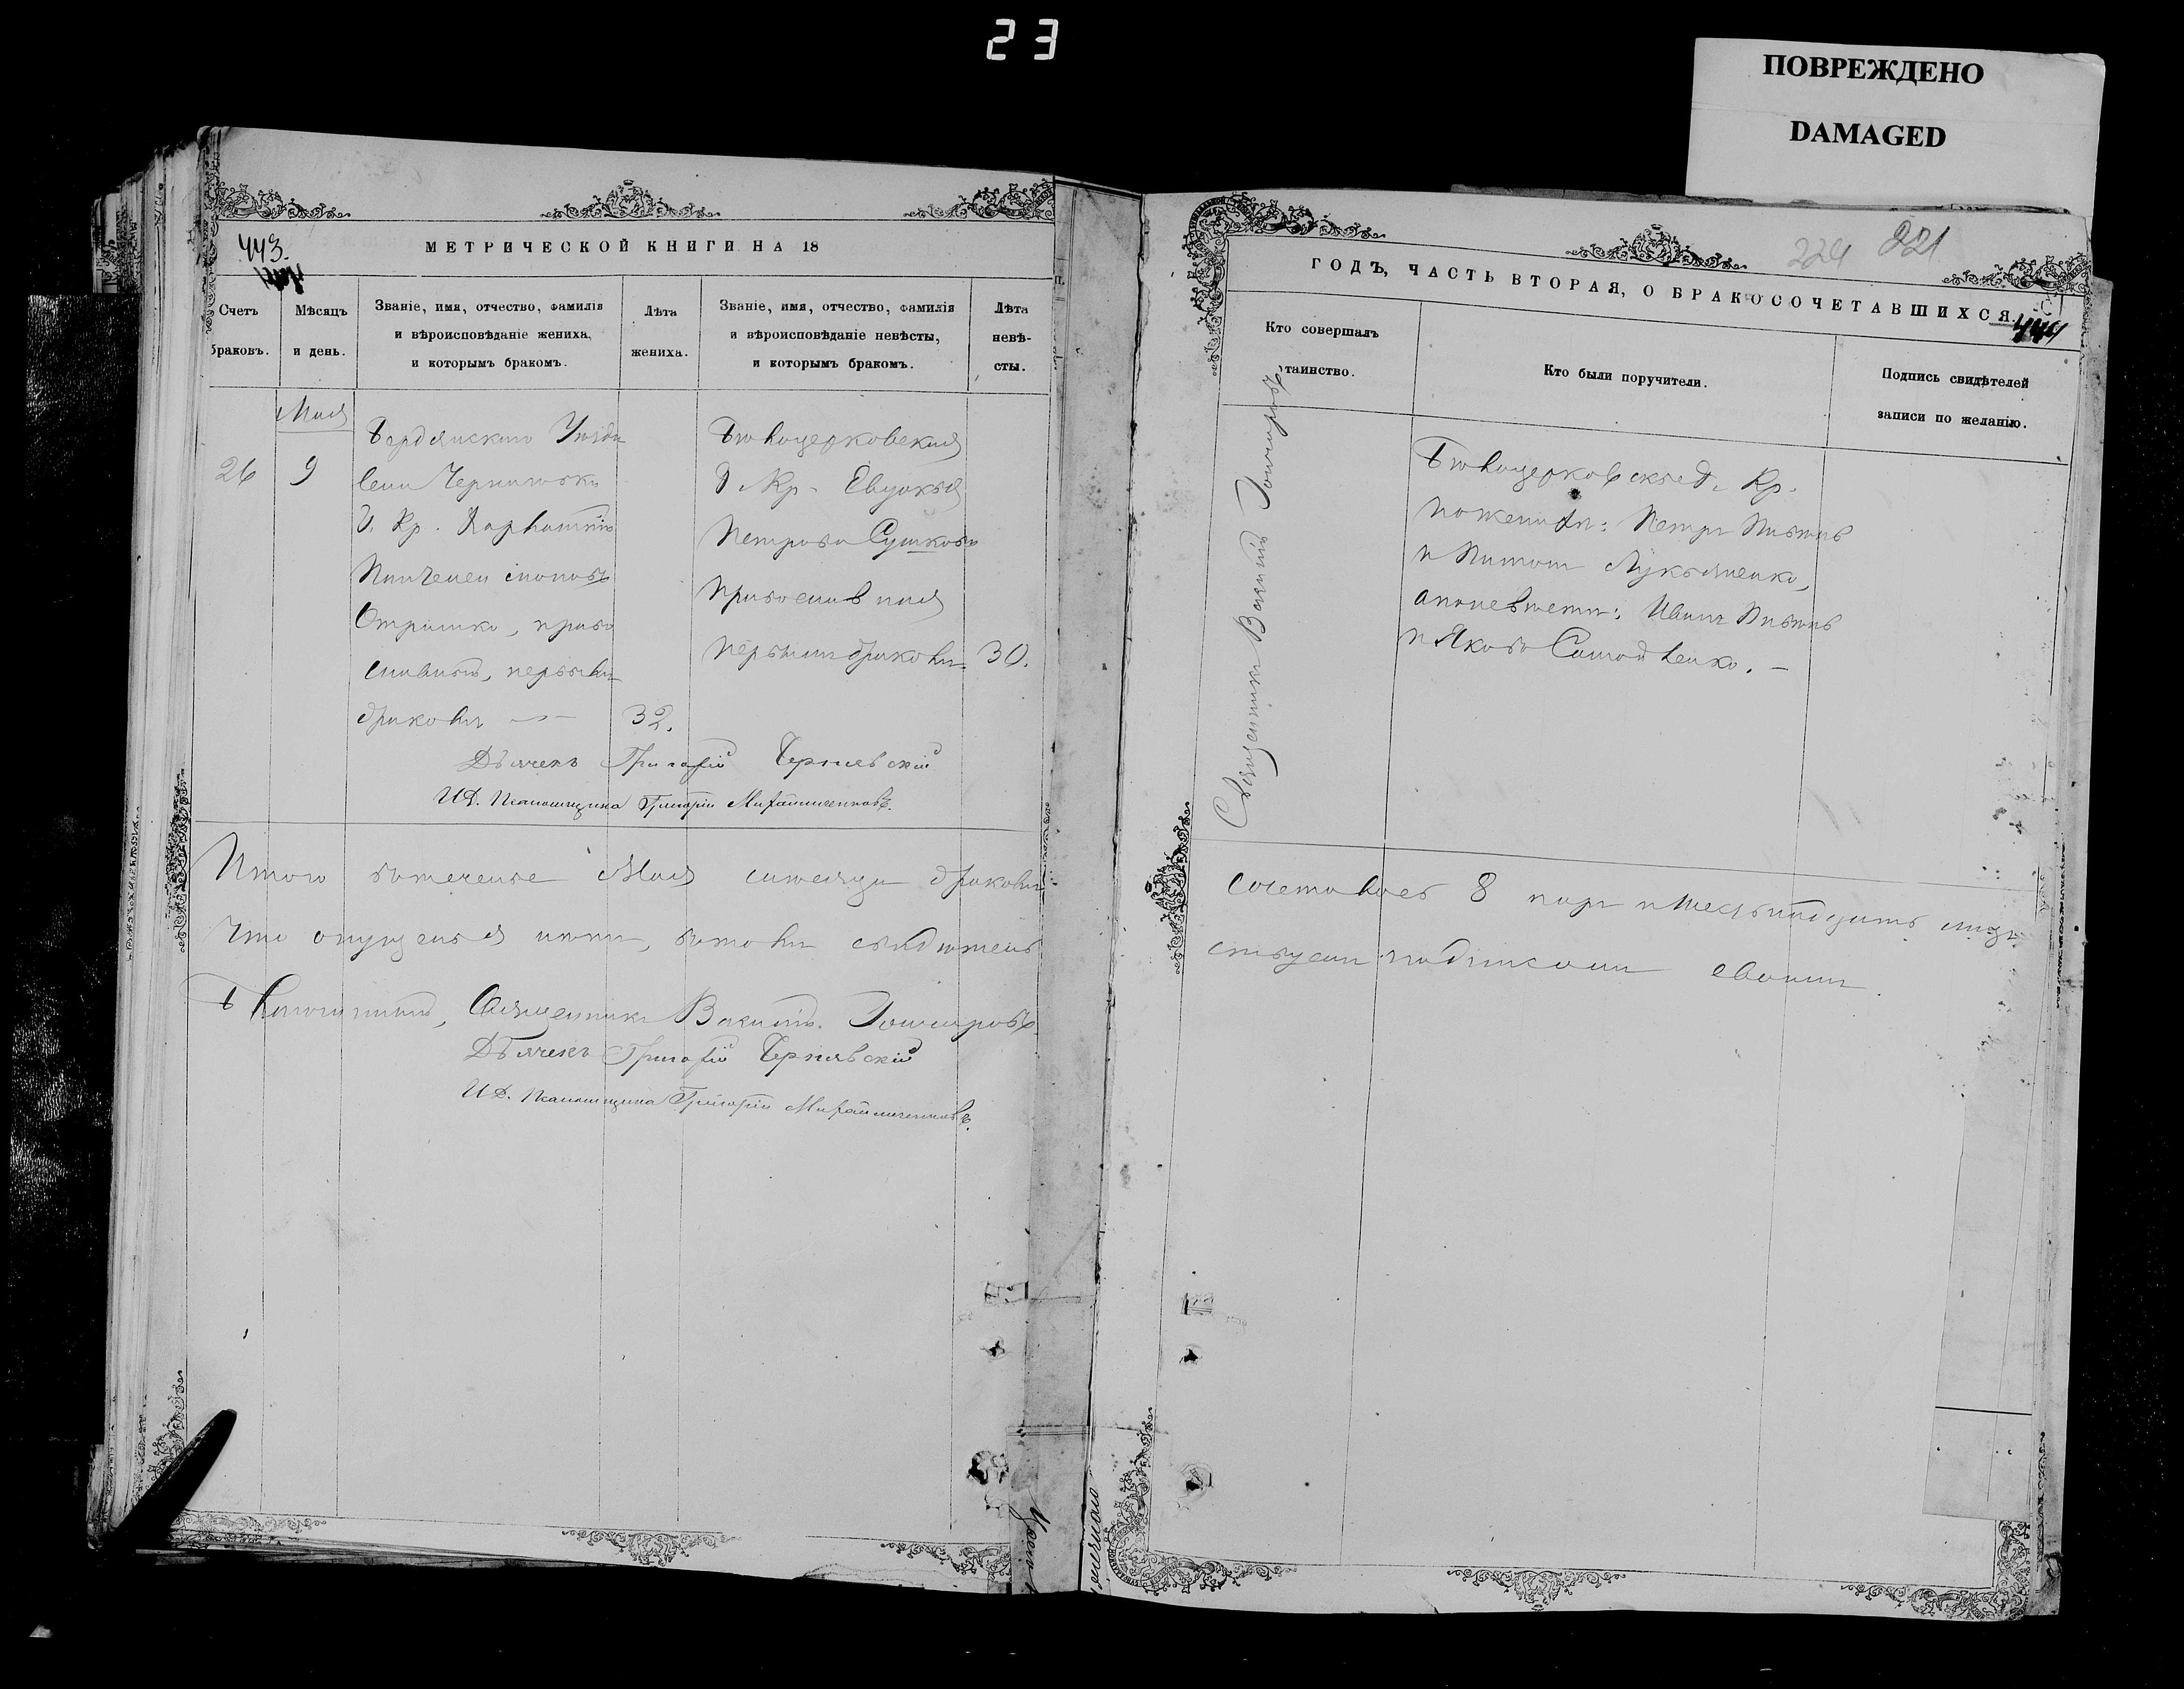 23
ПОВРЕЖДЕНО
DAMAGED
443.
МЕТРИЧЕСКОЙ КНИГИ НА 18
Счетъ браковъ.
Мѣсяцъ и день.
Званіе, имя, отчество, фамилія
и вѣроисповѣданіе жениха,
и которымъ бракомъ.
Лѣта
жениха.
Званіе, имя, отчество, фамилія
и вѣроисповѣданіе невѣсты,
и которымъ бракомъ.
Лѣта
невѣ-
сты.
Мая
26 9
Бердянскаго Уѣзда
села Черниговки
Г. Кр.
Отришко, право
славный, первымъ
бракомъ
32.
Бѣлоцерковская
Г. Кр. Евдокія
Петрова Сушкова
православная
первымъ бракомъ 30.
Дьячекъ Григорій Чернявскій
И.Д. Псаломщика Григорій Михайличенковъ.
Итого втеченіе Мая мѣсяца бракомъ
Что опущенія нѣтъ, въ томъ свидѣтель
Священникъ Василій Гончаровъ.
Дьячекъ Григорій Чернявскій
И.Д. Псаломщика Григорій Михайличенковъ.
224 221
ГОДЪ, ЧАСТЬ ВТОРАЯ, О БРАКОСОЧЕТАВШИХСЯ.
444
Кто совершалъ
таинство.
Кто были поручители.
Подпись свидѣтелей
записи по желанію.
Священникъ Василій Гончаровъ
Бѣлоцерковскіе Г. Кр.
по женихѣ: Петръ
и Лукьяненко,
а по невѣстѣ: Иванъ
и Яковъ
сочеталось 8 паръ и шестьнадцать лицъ
ствуемъ подписомъ своимъ.